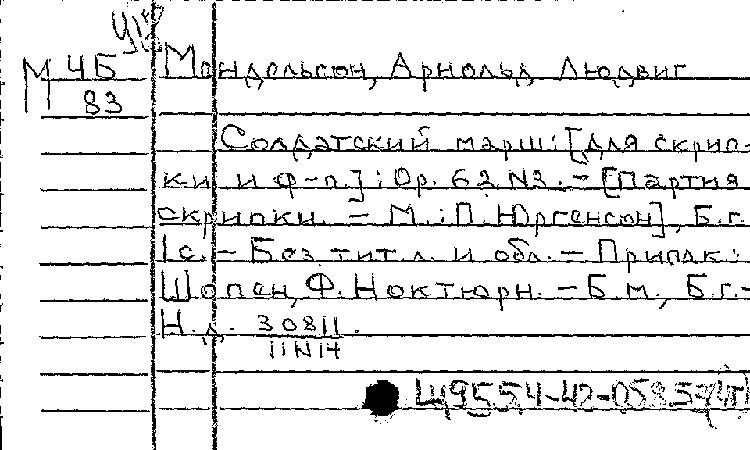 М 4Б Мендельсон, Арнольд Людвиг
83
Солдатский марш: [Для скрип-
ки и ф-п.]: Op. 62 № 2. – [Партия
скрипки. – М.: П. Юргенсон], Б.г.
1с. – Без тит. л. и обл. – Приплк:
Шопен, Ф. Ноктюрн. – Б.м., Б.г. –
Н.д. 30811.
11N14
Щ9554-42-